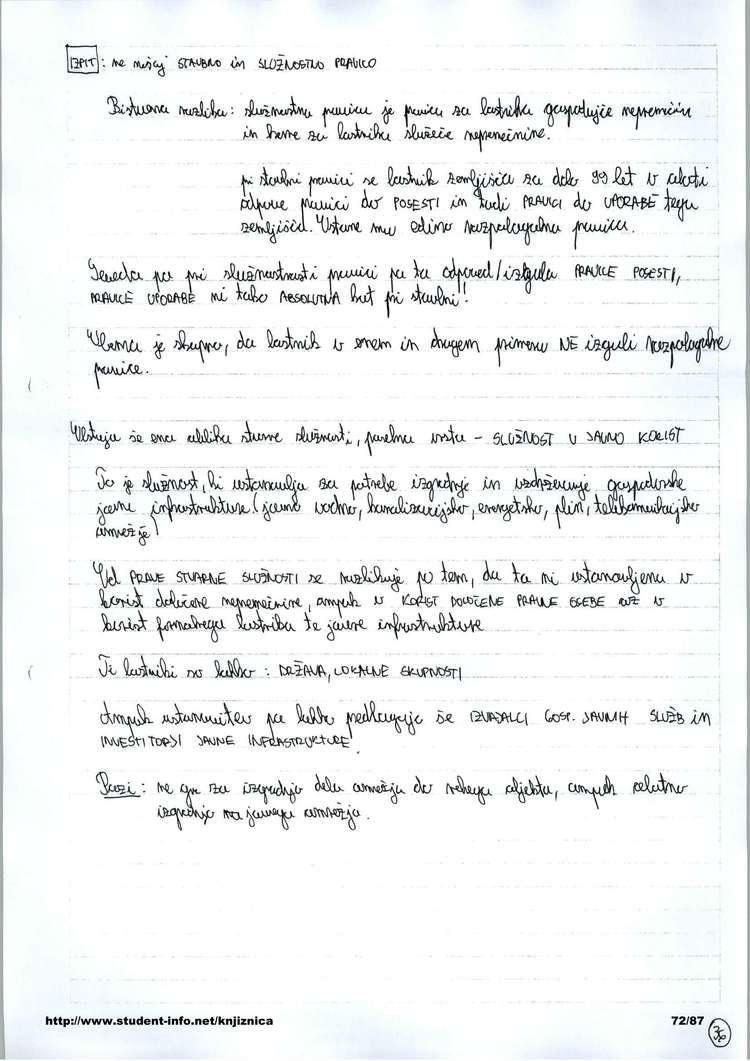 IZPIT: ne mešaj STAVBNO in SLUŽNOSTNO PRAVICO
Bistvena razlika: služnostna pravica je pravica za lastnika gospodujoče nepremičnin
in breme za lastnika služeče nepremičnine.
pri stavbni pravici se lastnik zemljišča za dobo 99 let v celoti
odpove pravici do POSESTI in tudi PRAVICI do UPORABE tega
zemljišča. Ostane mu edino razpolagalna pravica.
Seveda pa pri služnostnosti pravici pa ta odpoved/izguba PRAVICE POSESTI,
PRAVICE UPORABE ni tako ABSOLUTNA kot pri stavbni!
Obema je skupno, da lastnik v enem in drugem primeru NE izgubi razpolagalne
pravice.
Obstaja še ena oblika stvarne služnosti, posebna vrsta - SLUŽNOST V JAVNO KORIST
To je služnost, ki ustanavlja za potrebe izgradnje in vzdrževanje gospodarske
javne infrastrukture (javno vodno, kanalizacijsko, energetsko, plin, telekomunikacijsko
omrežje)
Od PRAVE STVARNE SLUŽNOSTI se razlikuje po tem, da ta ni ustanovljena v
korist določene nepremičnine, ampak v KORIST DOLOČENE PRAVNE OSEBE oz v
korist formalnega lastnika te javne infrastrukture
Ti lastniki so lahko: DRŽAVA, LOKALNE SKUPNOSTI
Ampak ustanovitev pa lahko predlagajo še IZVAJALCI GOSP. JAVNIH SLUŽB in
INVESTITORJI JAVNE INFRASTRUKTURE.
Pazi: ne gre za izgradnjo dela omrežja do nekega objekta, ampak celotno
izgradnjo javnega omrežja.
http://www.student-info.net/knjiznica
72/87
36